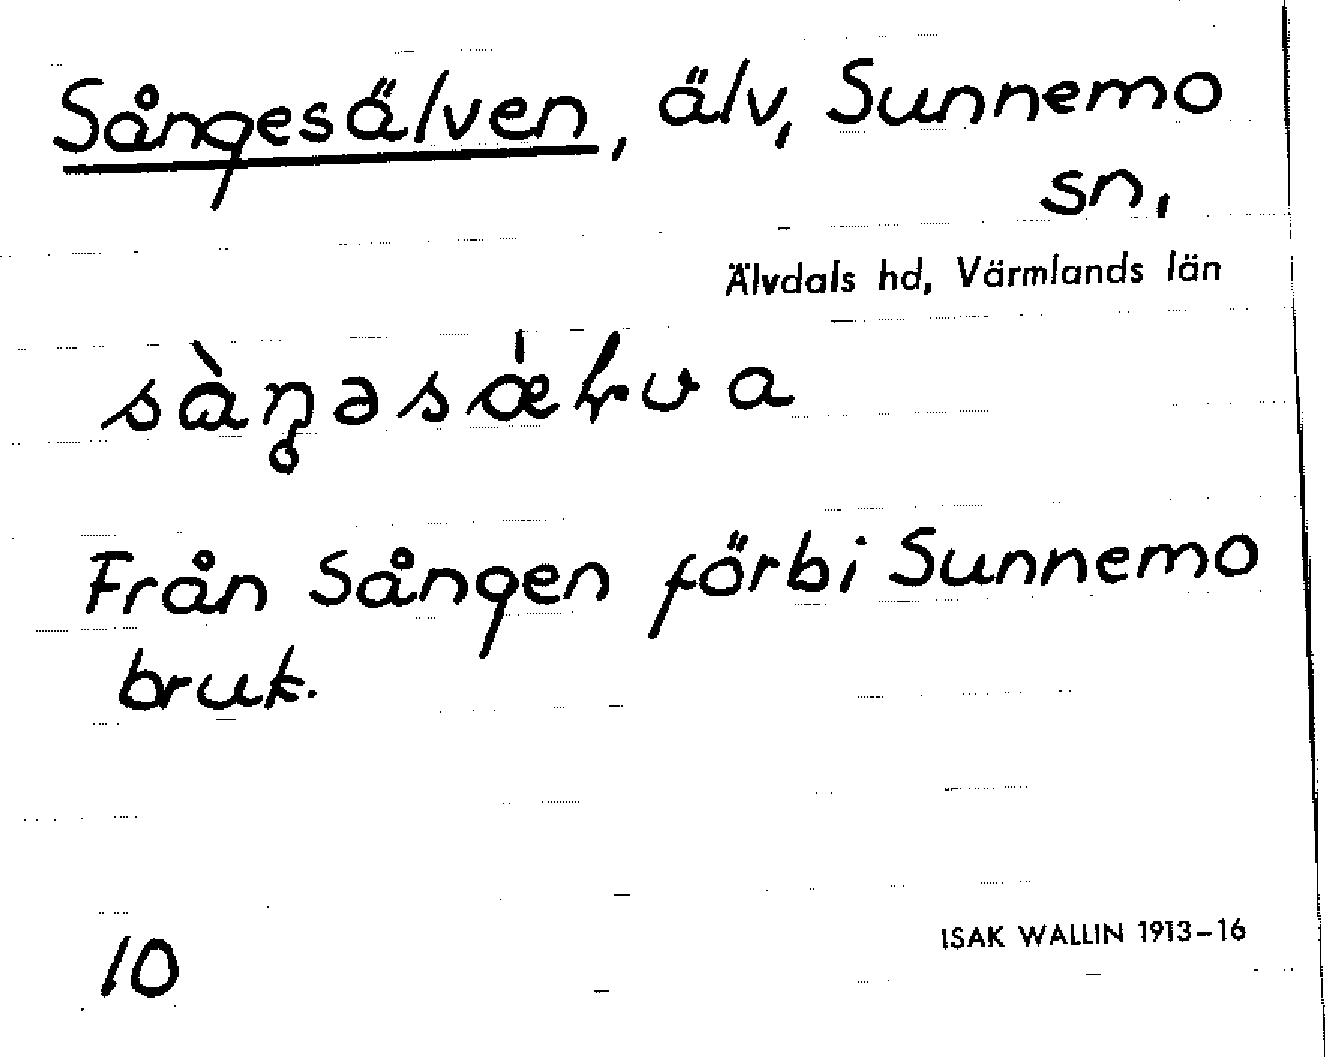 Sångesälven, älv, Sunnemo
sn,
Älvdals hd, Värmlands län
sàŋəsǽɽva
Från Sången förbi Sunnemo
bruk.
10
ISAK WALLIN 1913-16